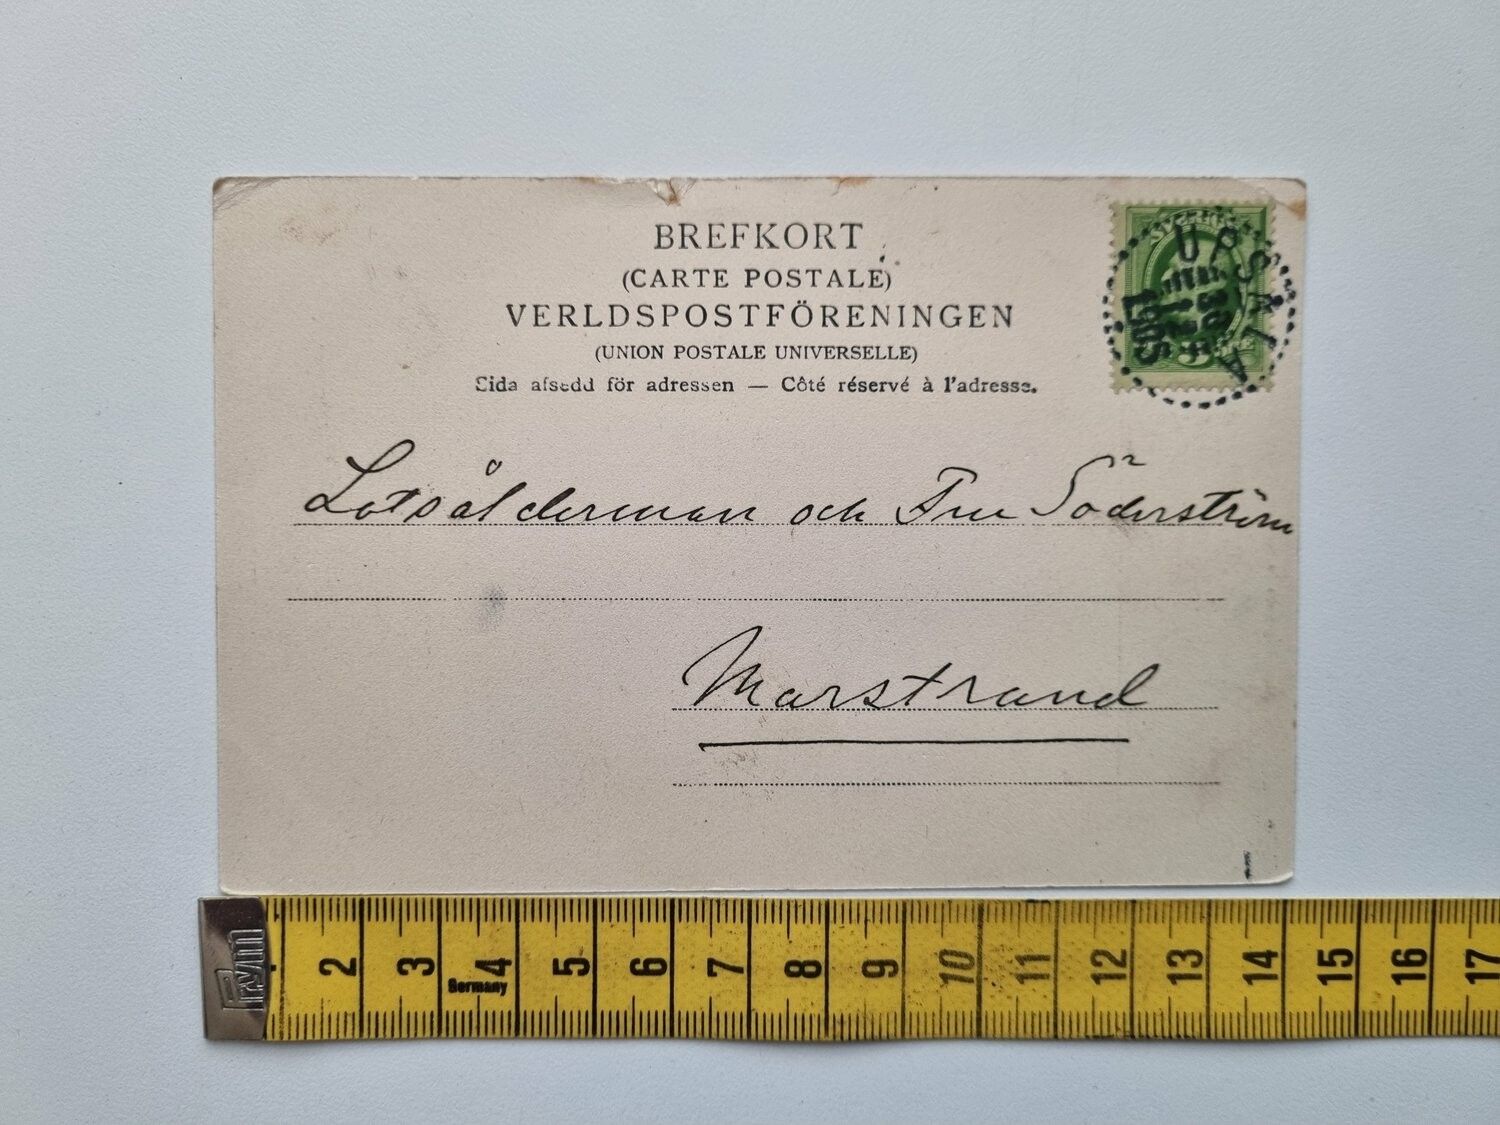 BREFKORT
(CARTE POSTALE)
VERLDSPOSTFÖRENINGEN
(UNION POSTALE UNIVERSELLE)
Sida afsedd för adressen — Côté réservé à l'adresse.
SVERIGE
UPSALA
30
12
1905
Lotsålderman och Fru Söderström
Marstrand
Prym
2 3 4 5 6 7 8 9 10 11 12 13 14 15 16 17
Germany